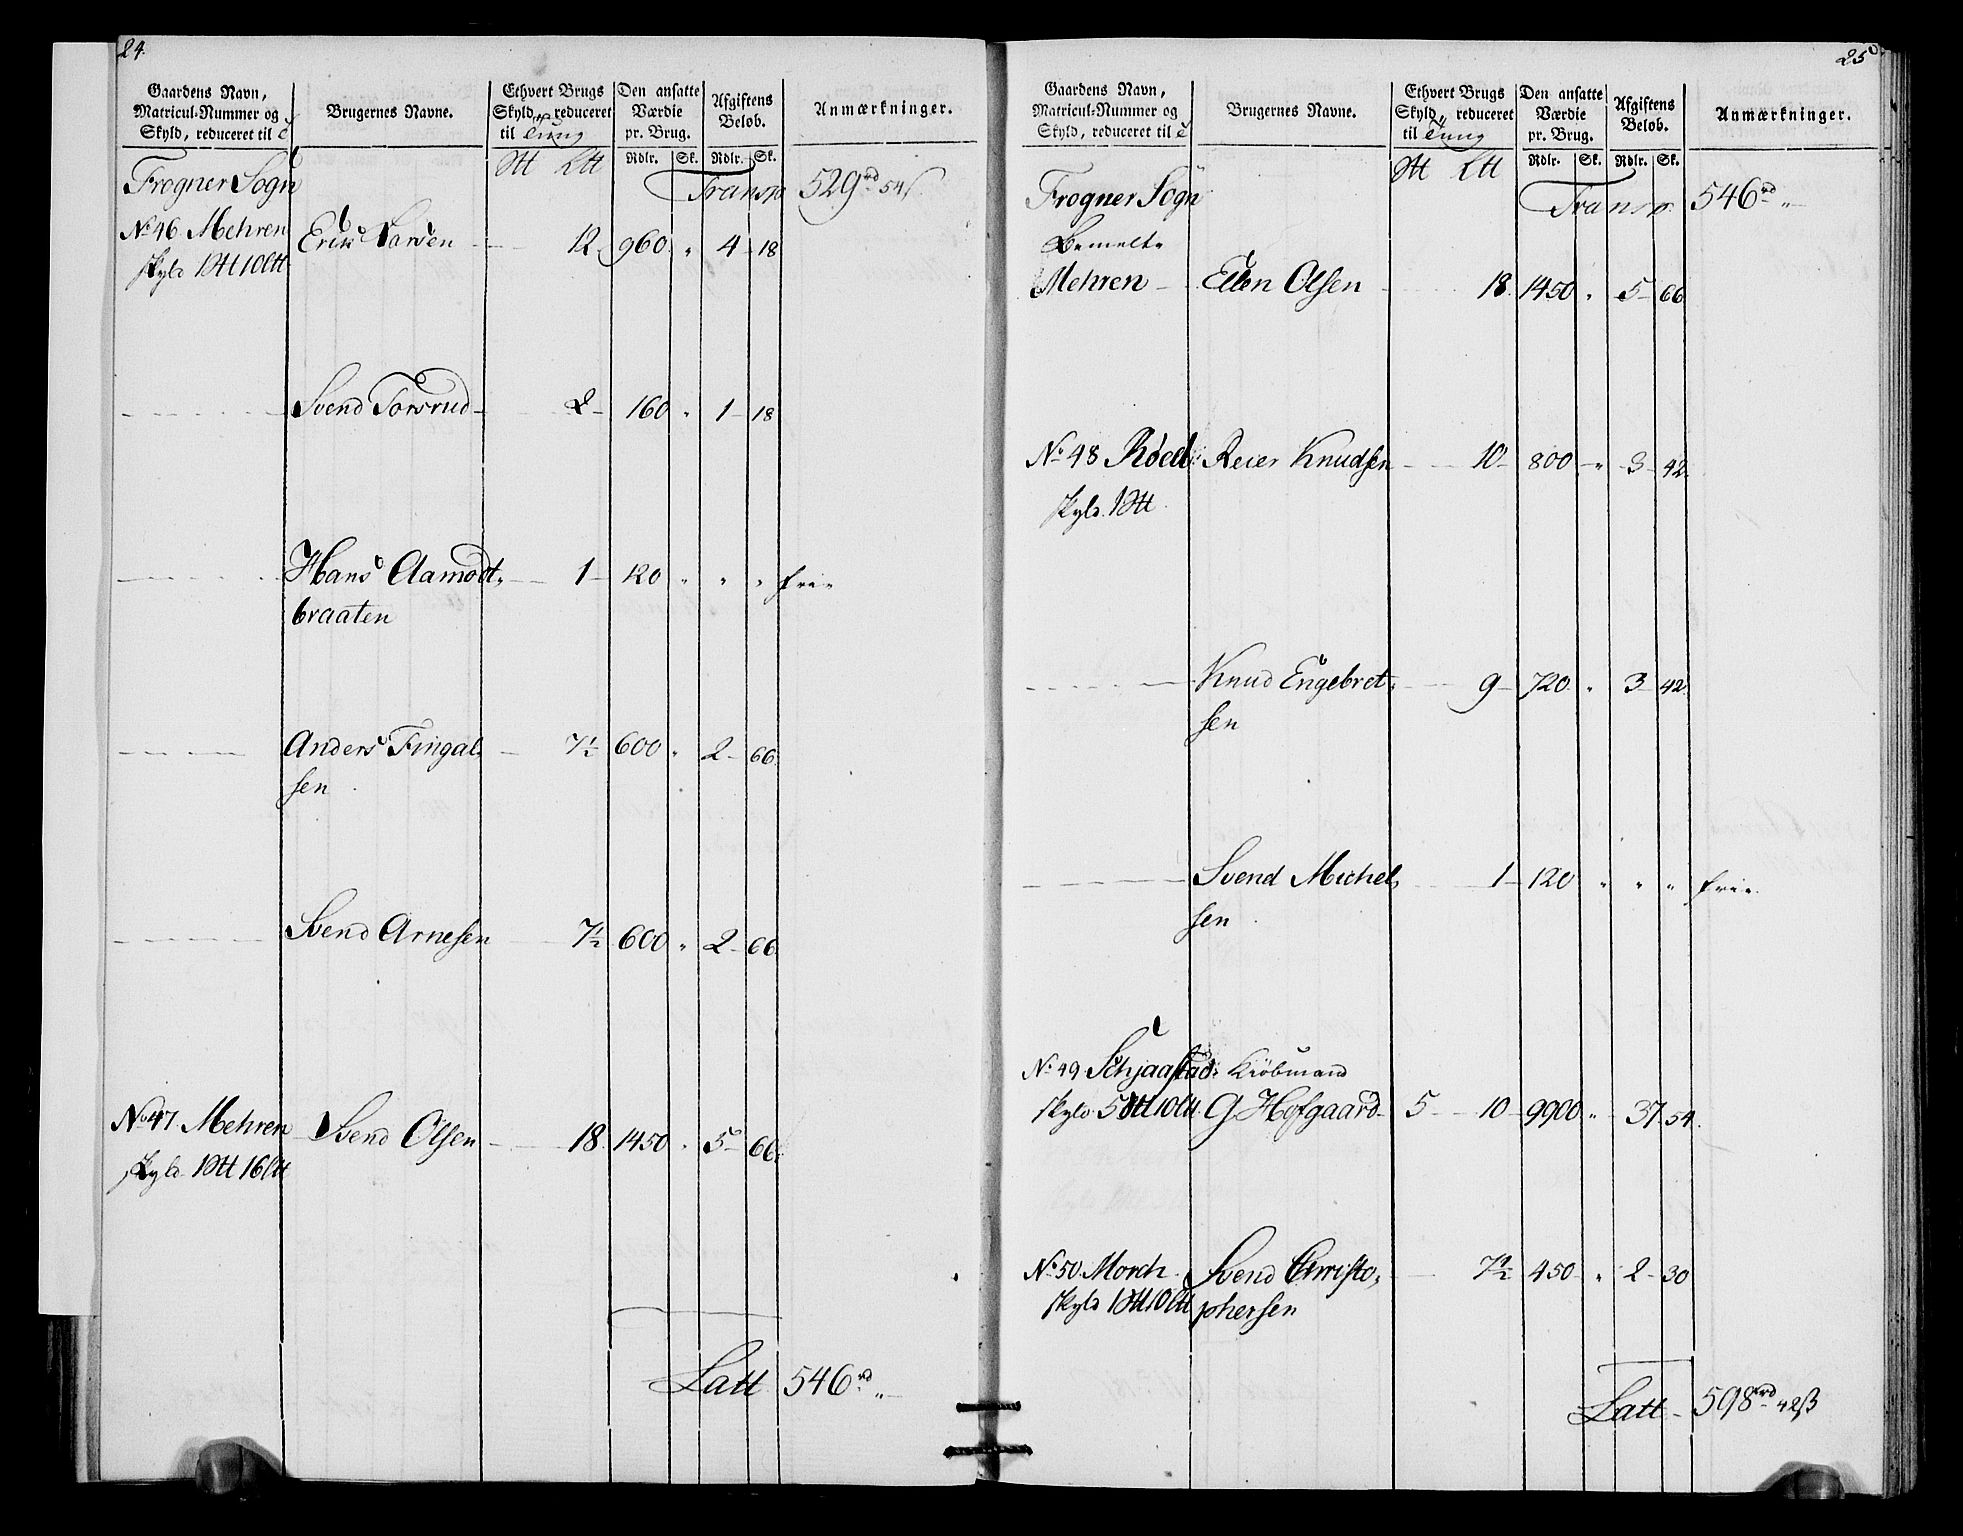 24.
Gaardens Navn,
Matricul-Nummer og
Skyld, reduceret til
Brugernes Navne.
Ethvert Brugs
Skyld, reduceret
til Tung
Den ansatte
Værdie
pr. Brug.
Afgiftens
Beløb.
Anmærkninger.
Rdlr. Sk. Rdlr. Sk.
Frogner Sogn Transp 529 rd 54
No 46 Mehren Erik Larsen 12 960 " 4 18
skyld 1 10
Svend Torsrud 2 160 " 1 18
Hans Aamodt 1 120 " " " frie
braaten
Anders Fingal 7½ 600 " 2 66
sen
Svend Arnesen 7½ 600 " 2 66
No 47 Mehren Svend Olsen 18 1450 " 5 66
skyld 1 16
Latt 546 rd "
25
Gaardens Navn,
Matricul-Nummer og
Skyld, reduceret til
Brugernes Navne.
Ethvert Brugs
Skyld, reduceret
til Tung
Den ansatte
Værdie
pr. Brug.
Afgiftens
Beløb.
Anmærkninger.
Rdlr. Sk. Rdlr. Sk.
Frogner Sogn Transp. 546 rd "
Bemelte
Mehren Ellen Olsen 18 1450 " 5 66
No 48 Røed Reier Knudsen 10 800 " 3 42
skyld 1
Knud Engebret 9 720 " 3 42
sen
Svend Michel 1 120 " " " frie
sen
No 49 Schjaastad Kiöbmand
skyld 5 10 G. Hofgaard 5 10 9900 " 37 54
No 50 Morch Svend Christo 7½ 450 " 2 30
skyld 1 10 phersen
Latt 598 rd 42 ß